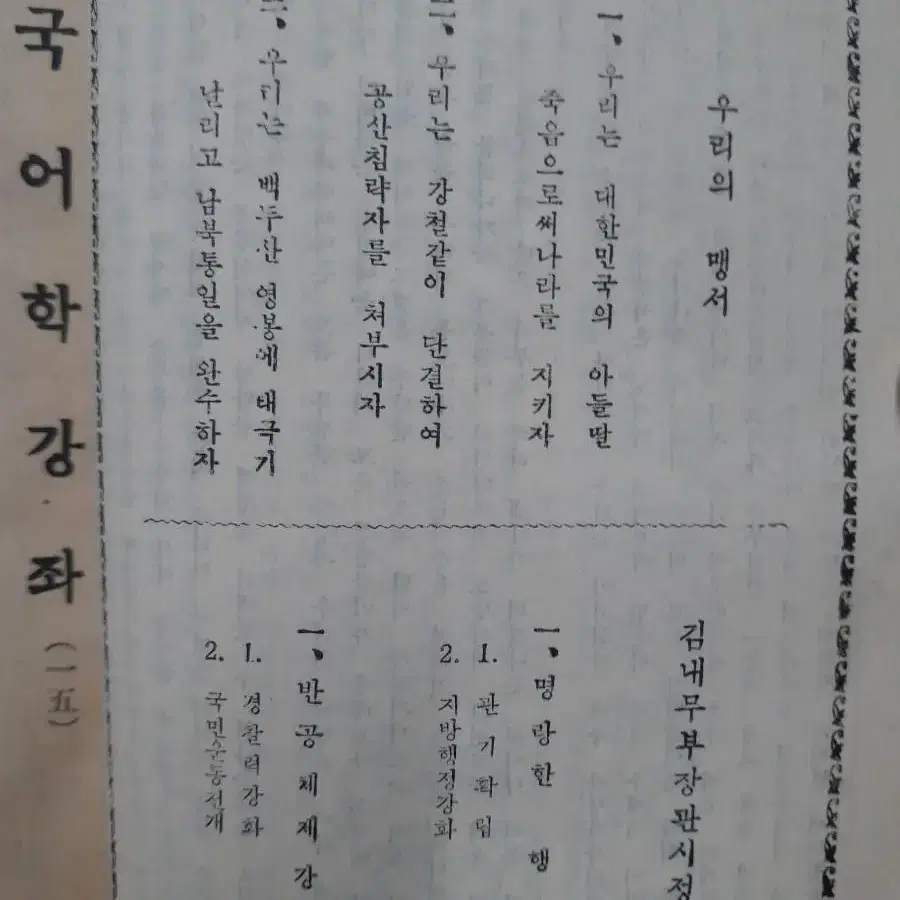 우리의 맹서
一、우리는 대한민국의 아들딸
죽음으로써나라를 지키자
二、우리는 강철같이 단결하여
공산침략자를 쳐부시자
三、우리는 백두산 영봉에 태극기
날리고 남북통일을 완수하자
김내무부장관시정
一、명랑한 행
1. 관기확립
2. 지방행정강화
一、반공체제강
1. 경찰력강화
2. 국민운동전개
국어학강좌(一五)